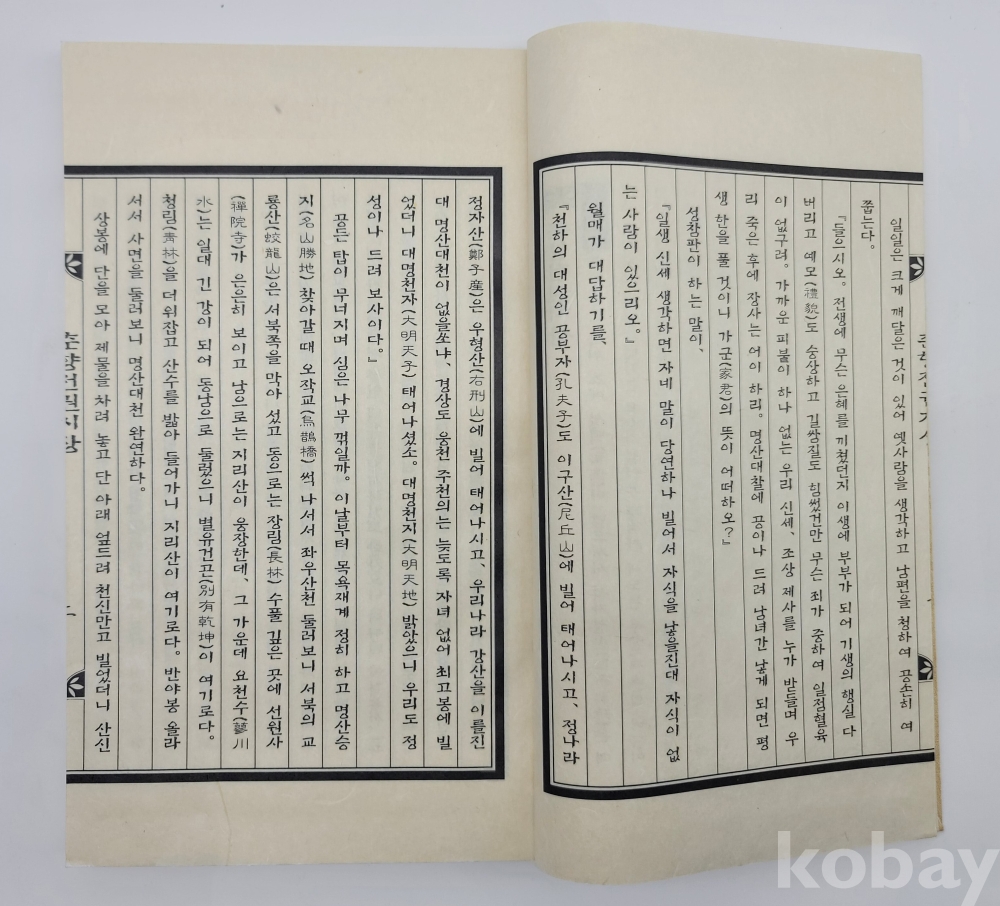 일일은 크게 깨달은 것이 있어 옛사람을 생각하고 남편을 청하여 공손히 여
쭙는다.
『들으시오. 전생에 무슨 은혜를 끼쳤던지 이생에 부부가 되어 기생의 행실 다
버리고 예모(禮貌)도 숭상하고 길쌈질도 힘썼건만 무슨 죄가 중하여 일점혈육
이 없구려. 가까운 피붙이 하나 없는 우리 신세, 조상 제사를 누가 받들며 우
리 죽은 후에 장사는 어이 하리. 명산대찰에 공이나 드려 남녀간 낳게 되면 평
생 한을 풀 것이니 가군(家君)의 뜻이 어떠하오?』
성참판이 하는 말이,
『일생 신세 생각하면 자네 말이 당연하나 빌어서 자식을 낳을진대 자식이 없
는 사람이 있으리오.』
월매가 대답하기를,
『천하의 대성인 공부자(孔夫子)도 이구산(尼丘山)에 빌어 태어나시고, 정나라
정자산(鄭子産)은 우형산(右刑山)에 빌어 태어나시고, 우리나라 강산을 이를진
대 명산대천이 없을쏘냐, 경상도 웅천 주천의는 늦도록 자녀 없어 최고봉에 빌
었더니 대명천자(大明天子) 태어나셨소. 대명천지(大明天地) 밝았으니 우리도 정
성이나 드려 보사이다.』
공든 탑이 무너지며 심은 나무 꺾일까. 이날부터 목욕재계 정히 하고 명산승
지(名山勝地) 찾아갈 때 오작교(烏鵲橋) 썩 나서서 좌우산천 둘러보니 서북의 교
룡산(蛟龍山)은 서북쪽을 막아 섰고 동으로는 장림(長林) 수풀 깊은 곳에 선원사
(禪院寺)가 은은히 보이고 남으로는 지리산이 웅장한데, 그 가운데 요천수(蓼川
水)는 일대 긴 강이 되어 동남으로 둘렀으니 별유건곤(別有乾坤)이 여기로다.
청림(靑林)을 더위잡고 산수를 밟아 들어가니 지리산이 여기로다. 반야봉 올라
서서 사면을 둘러보니 명산대천 완연하다.
상봉에 단을 모아 제물을 차려 놓고 단 아래 엎드려 천신만고 빌었더니 산신
kobay